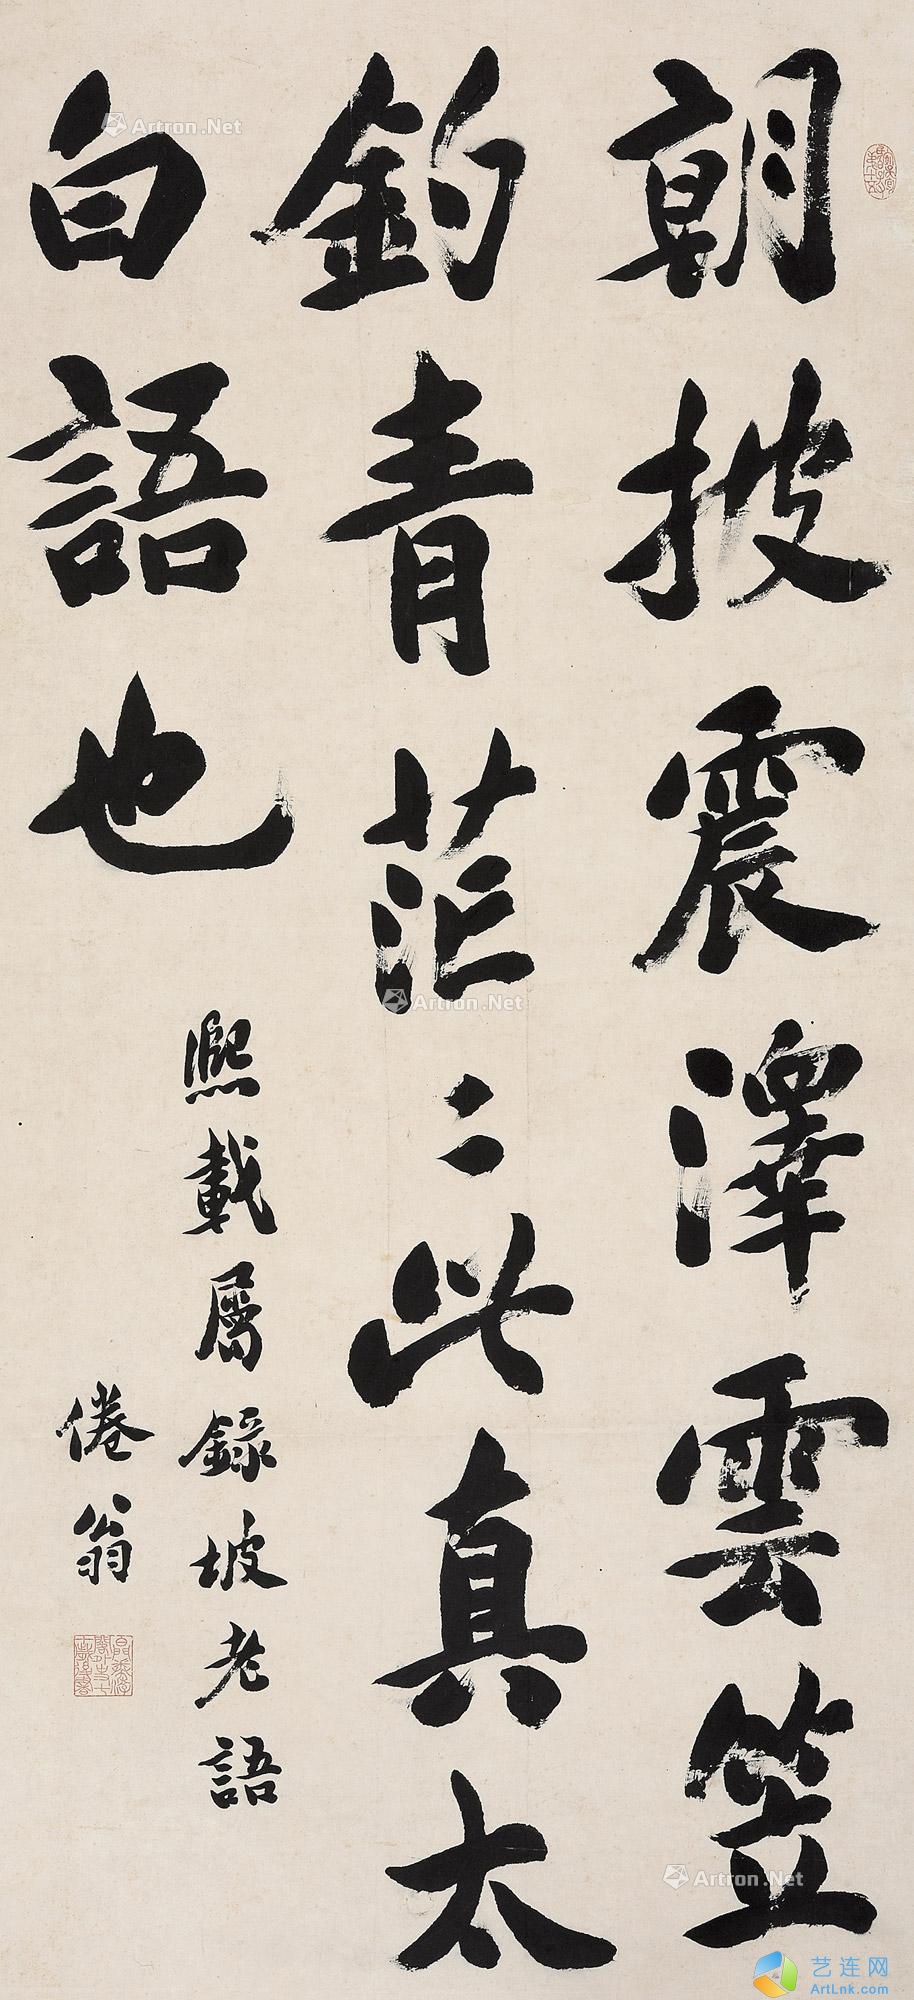 朝披震澤雲笠
釣青茫〻此真太
白語也
熙載屬錄坡老語
倦翁
Artron.Net
Artron.Net
Artron.Net
艺连网
ArtLnk.com